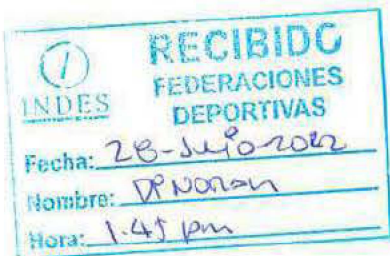 INDES
RECIBIDO
FEDERACIONES
DEPORTIVAS
Fecha: 28-Julio-2022
Nombre:
Hora: 1:45 pm